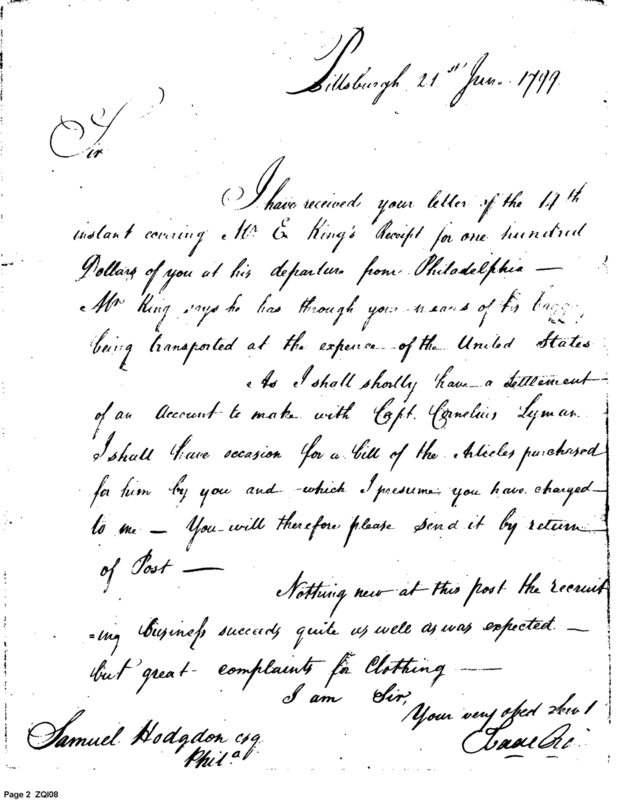 Pittsburgh 21st June 1799
Sir
I have received your letter of the 14th
instant covering Mr E King's Receipt for one hundred
Dollars of you at his departure from Philadelphia —
Mr King says he has through your means of his
being transported at the expence of the United States
As I shall shortly have a settlement
of an Account to make with Capt. Cornelius Lyman
I shall have occasion for a bill of the Articles purchased
for him by you and which I presume you have charged
to me — You will therefore please send it by return
of Post —
Nothing new at this post the recruit
=ing business succeeds quite as well as was expected —
but great complaints for Clothing —
I am Sir,
Your very obed Servt
Samuel Hodgdon esq
Phila
Page 2 ZQI08